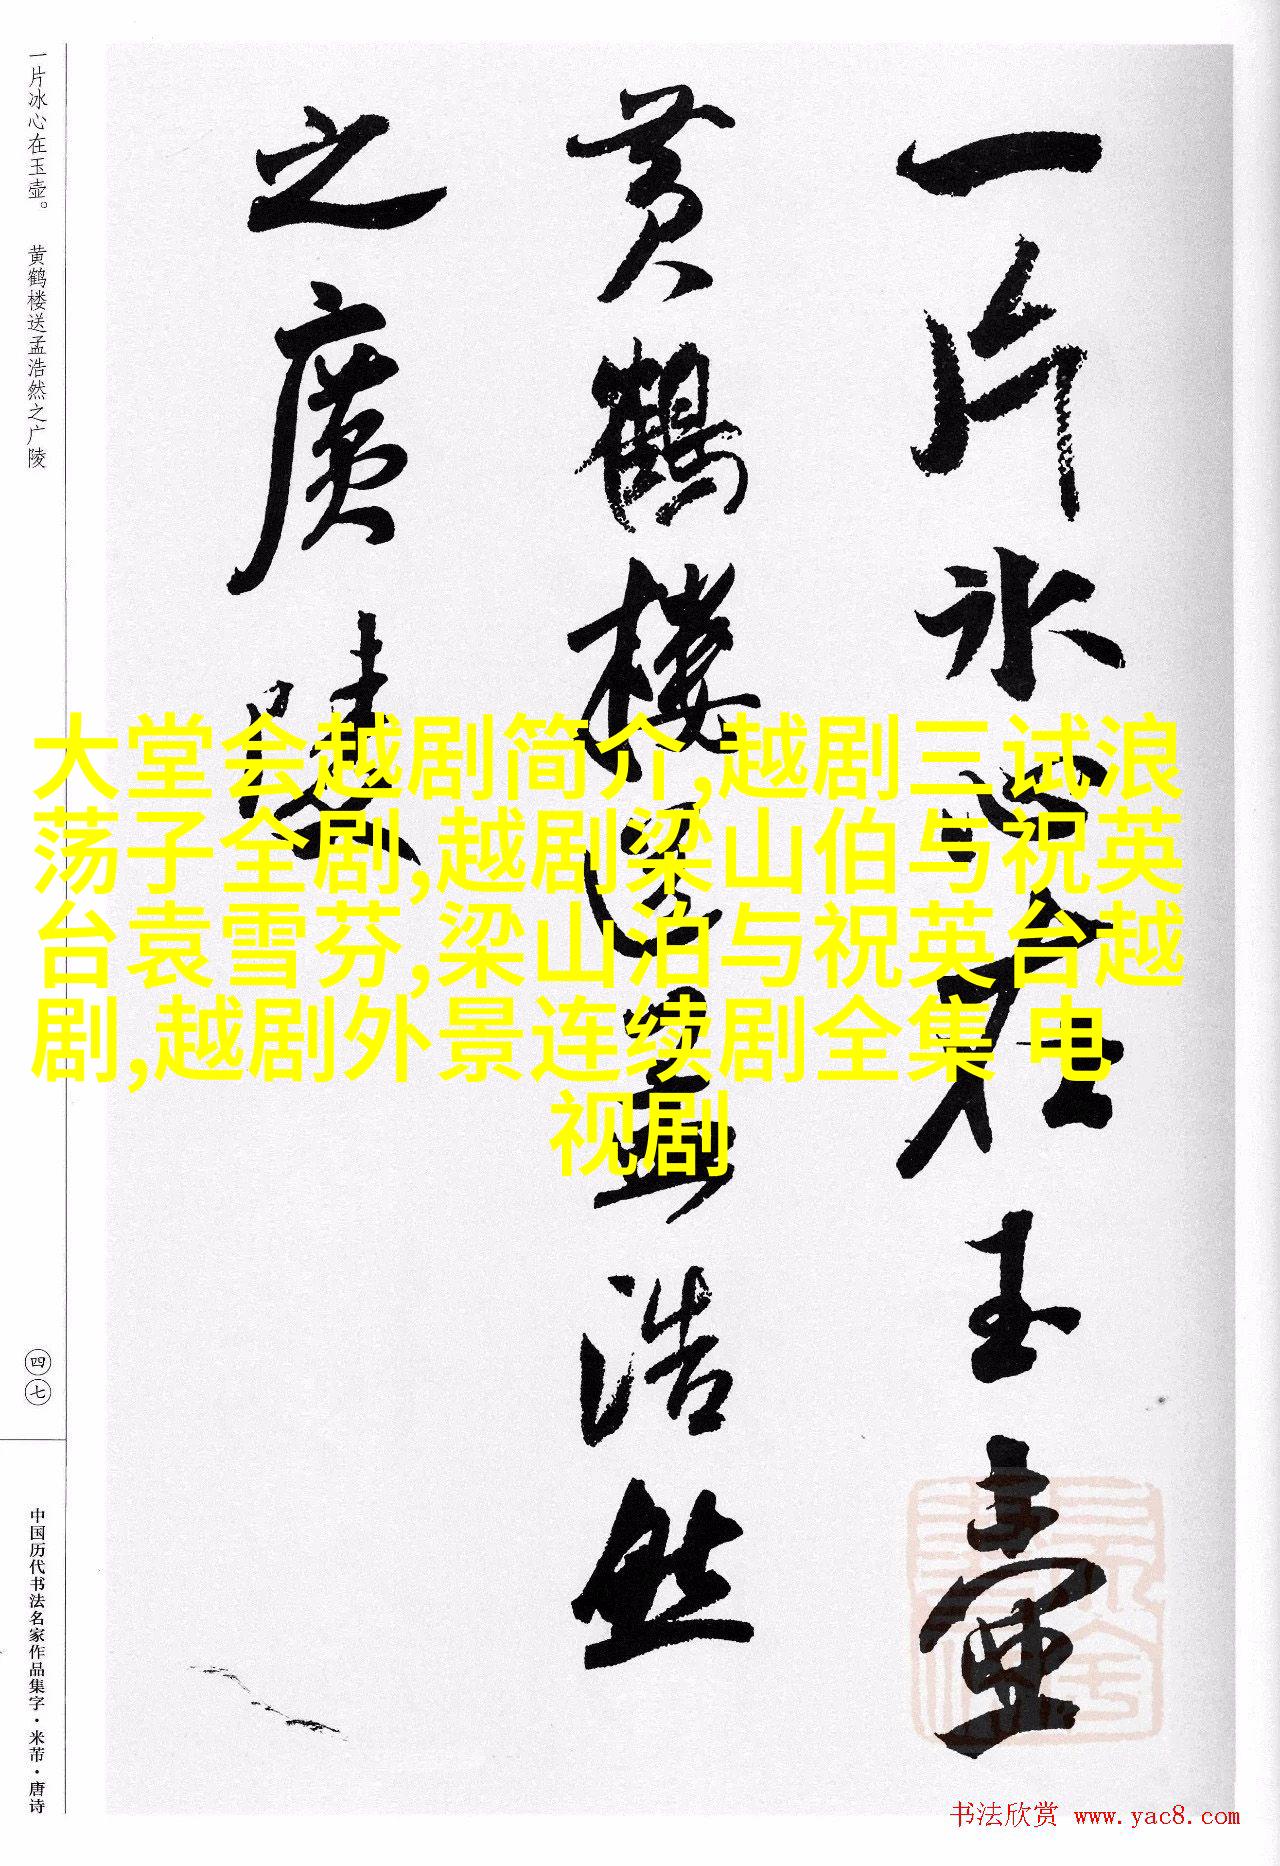 一片冰心在玉壶。 黄鹤楼送孟浩然之广陵
一片氷心在玉壷
黄鹤楼送孟浩然
之廣陵
大堂会越剧简介,越剧三试浪
荡子全剧,越剧梁山伯与祝英
台袁雪芬,梁山泊与祝英台越
剧,越剧外景连续剧全集 电
视剧
四七
中国历代书法名家作品集字·米芾·唐诗
书法欣赏 www.yac8.com